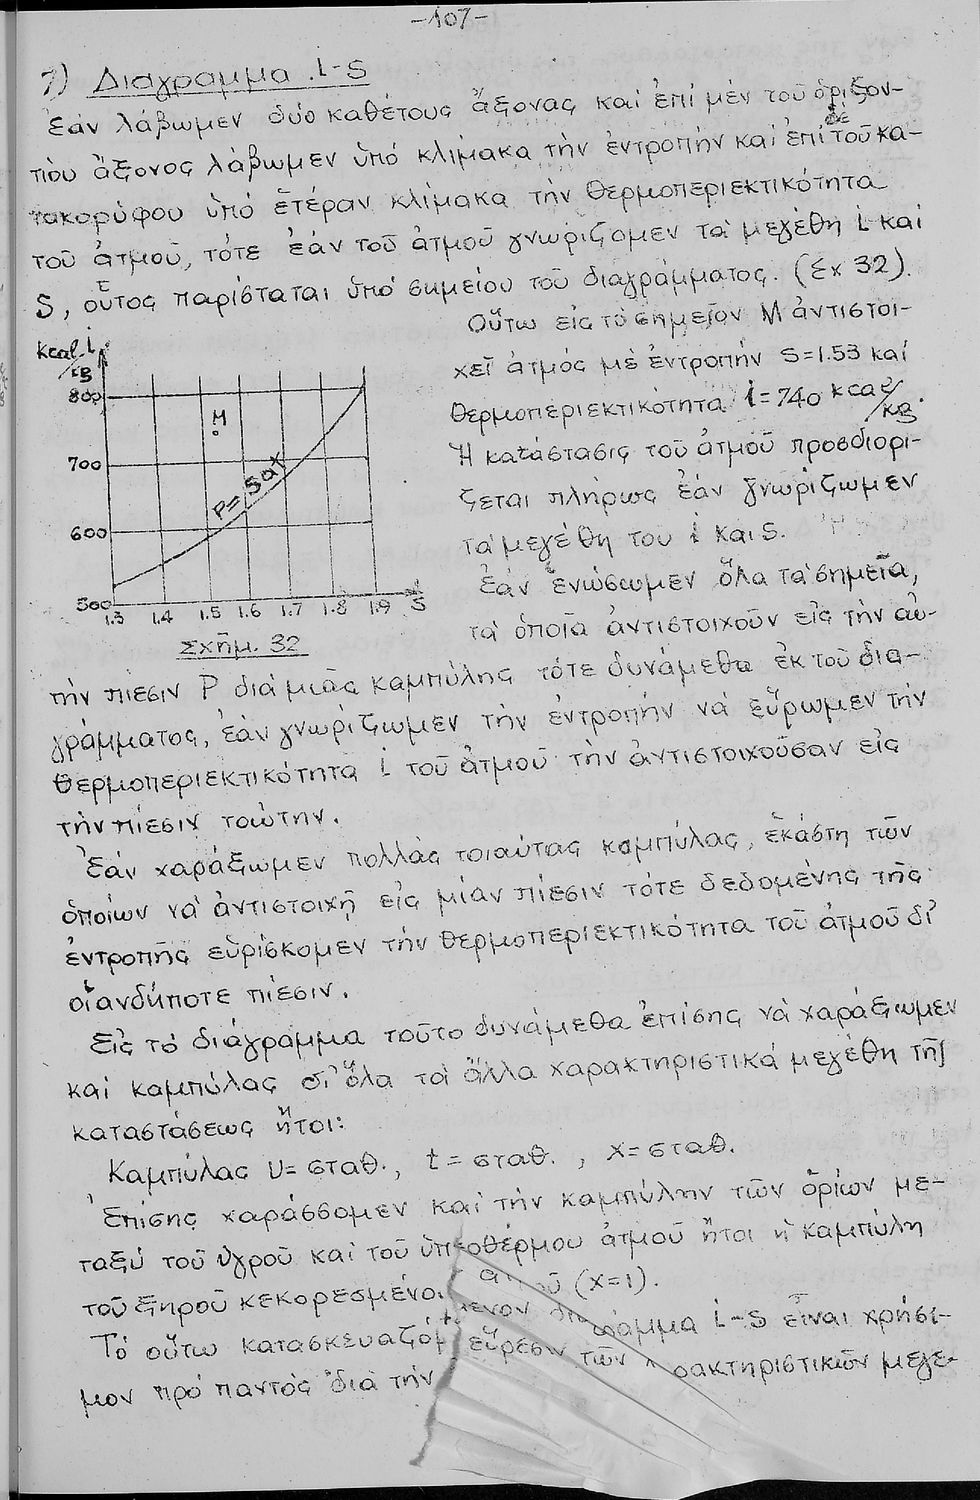 -107-
7) Διάγραμμα i-S
Ἐάν λάβωμεν δύο καθέτους ἄξονας καί ἐπί μέν τοῦ ὁριζον-
τίου ἄξονος λάβωμεν ὑπό κλίμακα τὴν ἐντροπήν καί ἐπί δέ τοῦ κα-
τακορύφου ὑπό ἑτέραν κλίμακα τὴν θερμοπεριεκτικότητα
τοῦ ἀτμοῦ, τότε ἐάν τοῦ ἀτμοῦ γνωρίζομεν τά μεγέθη i καί
S, οὗτος παρίσταται ὑπό σημείου τοῦ διαγράμματος. (Σχ 32).
Οὕτω εἰς τό σημεῖον Μ ἀντιστοι-
χεῖ ἀτμός μέ ἐντροπήν S=1.53 καί
θερμοπεριεκτικότητα i=740 kcal/kg.
Ἡ κατάστασις τοῦ ἀτμοῦ προσδιορί-
ζεται πλήρως ἐάν γνωρίζωμεν
τά μεγέθη του i καί S.
Ἐάν ἑνώσωμεν ὅλα τά σημεῖα,
τά ὁποῖα ἀντιστοιχοῦν εἰς τὴν αὐ-
kcal/kg i
800
700
600
500
M
P=σαχ
1.3 1.4 1.5 1.6 1.7 1.8 1.9 S
Σχῆμ. 32
τήν πίεσιν P διά μιᾶς καμπύλης τότε δυνάμεθα ἐκ τοῦ δια-
γράμματος, ἐάν γνωρίζωμεν τὴν ἐντροπήν νά εὕρωμεν τήν
θερμοπεριεκτικότητα i τοῦ ἀτμοῦ τὴν ἀντιστοιχοῦσαν εἰς
τήν πίεσιν ταύτην.
Ἐάν χαράξωμεν πολλάς τοιαύτας καμπύλας, ἑκάστη τῶν
ὁποίων νά ἀντιστοιχῇ εἰς μίαν πίεσιν τότε δεδομένης τῆς
ἐντροπῆς εὑρίσκομεν τήν θερμοπεριεκτικότητα τοῦ ἀτμοῦ δι'
οἱανδήποτε πίεσιν.
Εἰς τό διάγραμμα τοῦτο δυνάμεθα ἐπίσης νά χαράξωμεν
καί καμπύλας δι' ὅλα τά ἄλλα χαρακτηριστικά μεγέθη τῆς
καταστάσεως ἤτοι:
Καμπύλας υ=σταθ., t=σταθ., x=σταθ.
Ἐπίσης χαράσσομεν καί τήν καμπύλην τῶν ὁρίων με-
ταξύ τοῦ ὑγροῦ καί τοῦ ὑπερθέρμου ἀτμοῦ ἤτοι ἡ καμπύλη
τοῦ ξηροῦ κεκορεσμένου ἀτμοῦ (x=1).
Τό οὕτω κατασκευαζόμενον διάγραμμα i-S εἶναι χρήσι-
μον πρό παντός διά τήν εὕρεσιν τῶν χαρακτηριστικῶν μεγε-